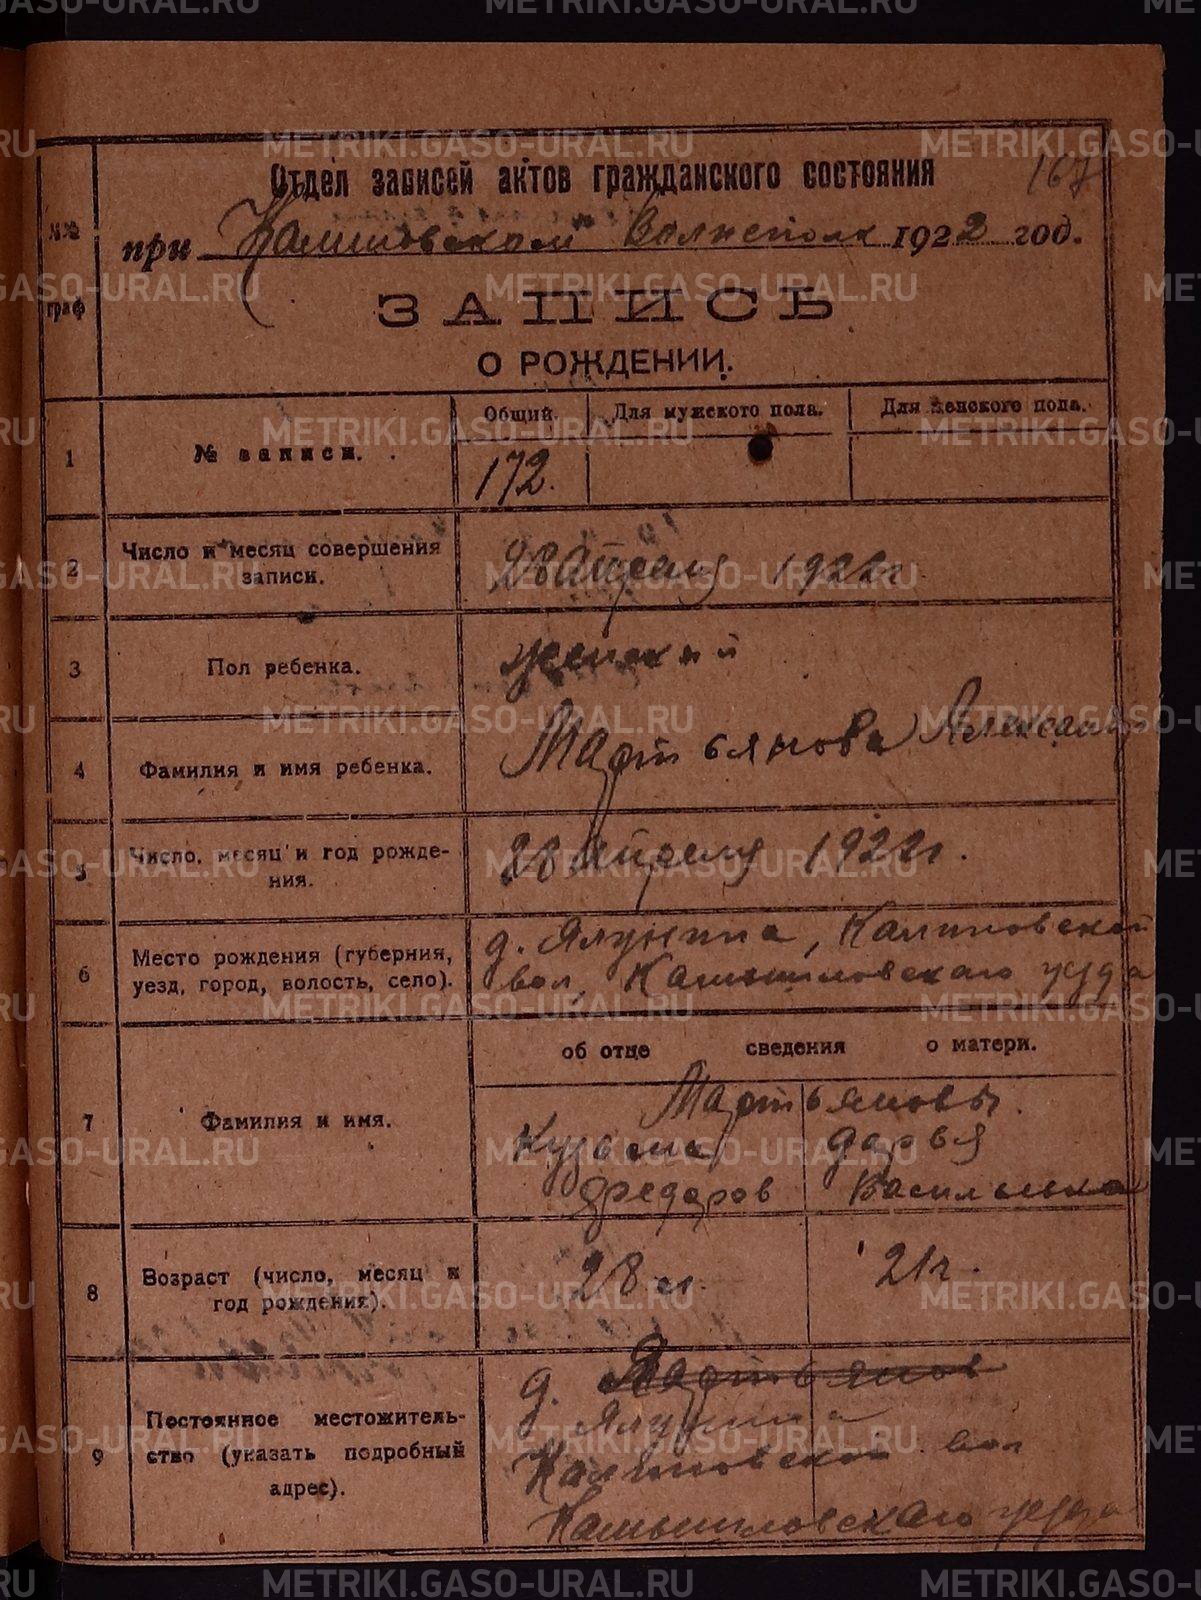 167
Отдел записей актов гражданского состояния
при Калиновском Волисполк 1922 год.
№№ граф
ЗАПИСЬ
О РОЖДЕНИИ.
Общий. Для мужского пола. Для женского пола.
1 № записи. 172.
2 Число и месяц совершения
записи.
28 Апреля 1922 г.
3 Пол ребенка. женский
4 Фамилия и имя ребенка. Мартьянова
5 Число, месяц и год рожде-
ния.
28 Апреля 1922 г.
6 Место рождения (губерния,
уезд, город, волость, село).
д. Ялунина, Калиновской
вол, Камышловскаго уезда
об отце сведения о матери.
7 Фамилия и имя.
Мартьяновы.
Кузьма Дарья
Федоров Васильевна
8 Возраст (число, месяц и
год рождения).
28 л. 21 г.
9 Постоянное местожитель-
ство (указать подробный
адрес).
д. Мартьянов
Ялунина
Калиновской вол
Камышловскаго уезда
METRIKI.GASO-URAL.RU